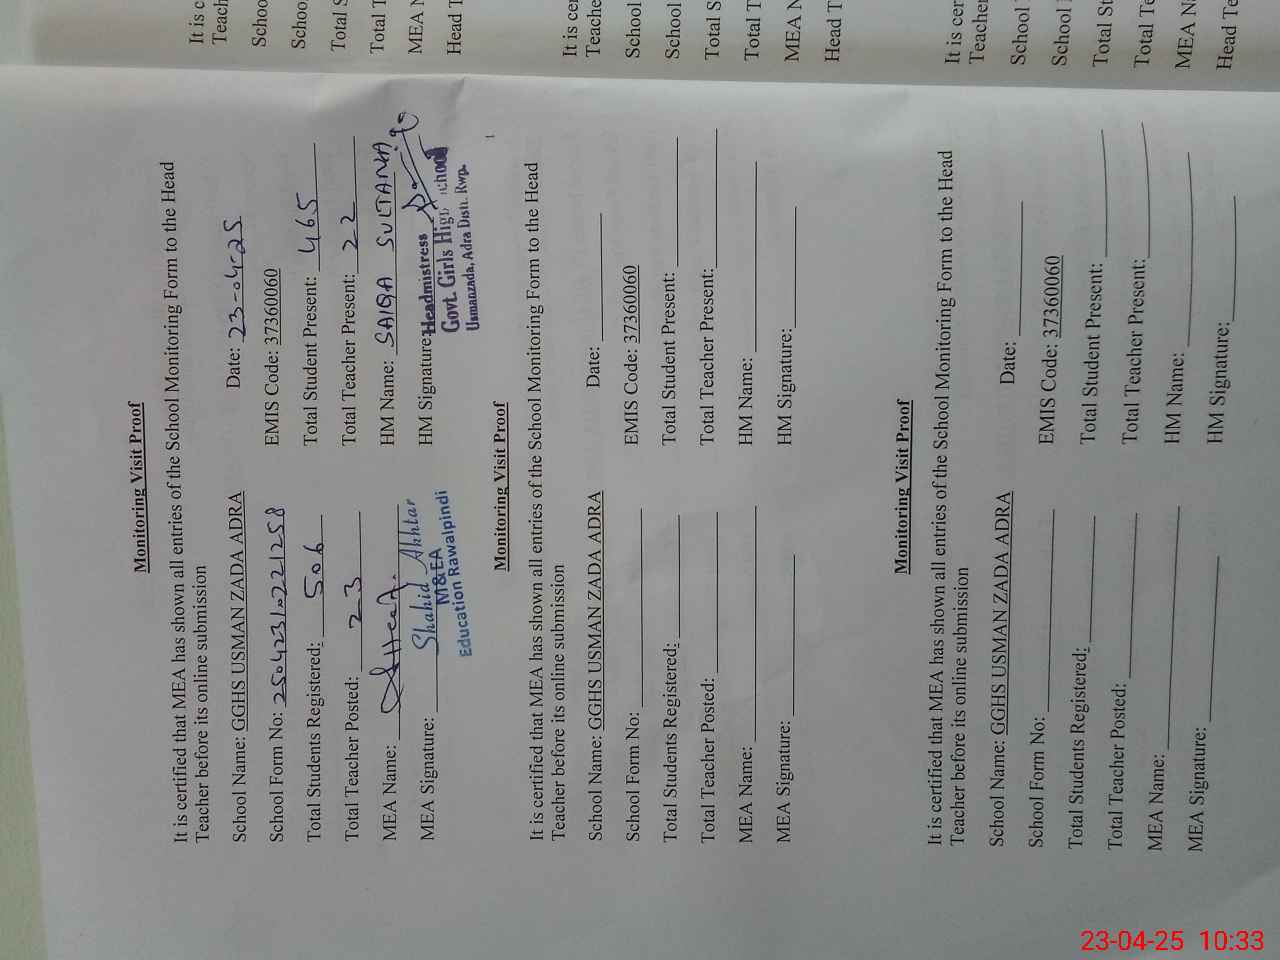 Monitoring Visit Proof
It is certified that MEA has shown all entries of the School Monitoring Form to the Head
Teacher before its online submission
School Name: GGHS USMAN ZADA ADRA Date: 23-04-25
School Form No: 25042310221258 EMIS Code: 37360060
Total Students Registered: 506 Total Student Present: 465
Total Teacher Posted: 23 Total Teacher Present: 22
MEA Name: HM Name: SAIQA SULTANA
MEA Signature: Shahid Akhtar HM Signature:
M&EA
Education Rawalpindi
Headmistress
Govt. Girls High School
Usmanzada, Adra Distt. Rwp.
Monitoring Visit Proof
It is certified that MEA has shown all entries of the School Monitoring Form to the Head
Teacher before its online submission
School Name: GGHS USMAN ZADA ADRA Date:
School Form No: EMIS Code: 37360060
Total Students Registered: Total Student Present:
Total Teacher Posted: Total Teacher Present:
MEA Name: HM Name:
MEA Signature: HM Signature:
Monitoring Visit Proof
It is certified that MEA has shown all entries of the School Monitoring Form to the Head
Teacher before its online submission
School Name: GGHS USMAN ZADA ADRA Date:
School Form No: EMIS Code: 37360060
Total Students Registered: Total Student Present:
Total Teacher Posted: Total Teacher Present:
MEA Name: HM Name:
MEA Signature: HM Signature:
It is c
Teach
School
Schoo
Total S
Total T
MEA N
Head T
It is cer
Teache
School
School
Total S
Total T
MEA N
Head T
It is cer
Teacher
School
School
Total St
Total Te
MEA Na
Head Te
23-04-25 10:33